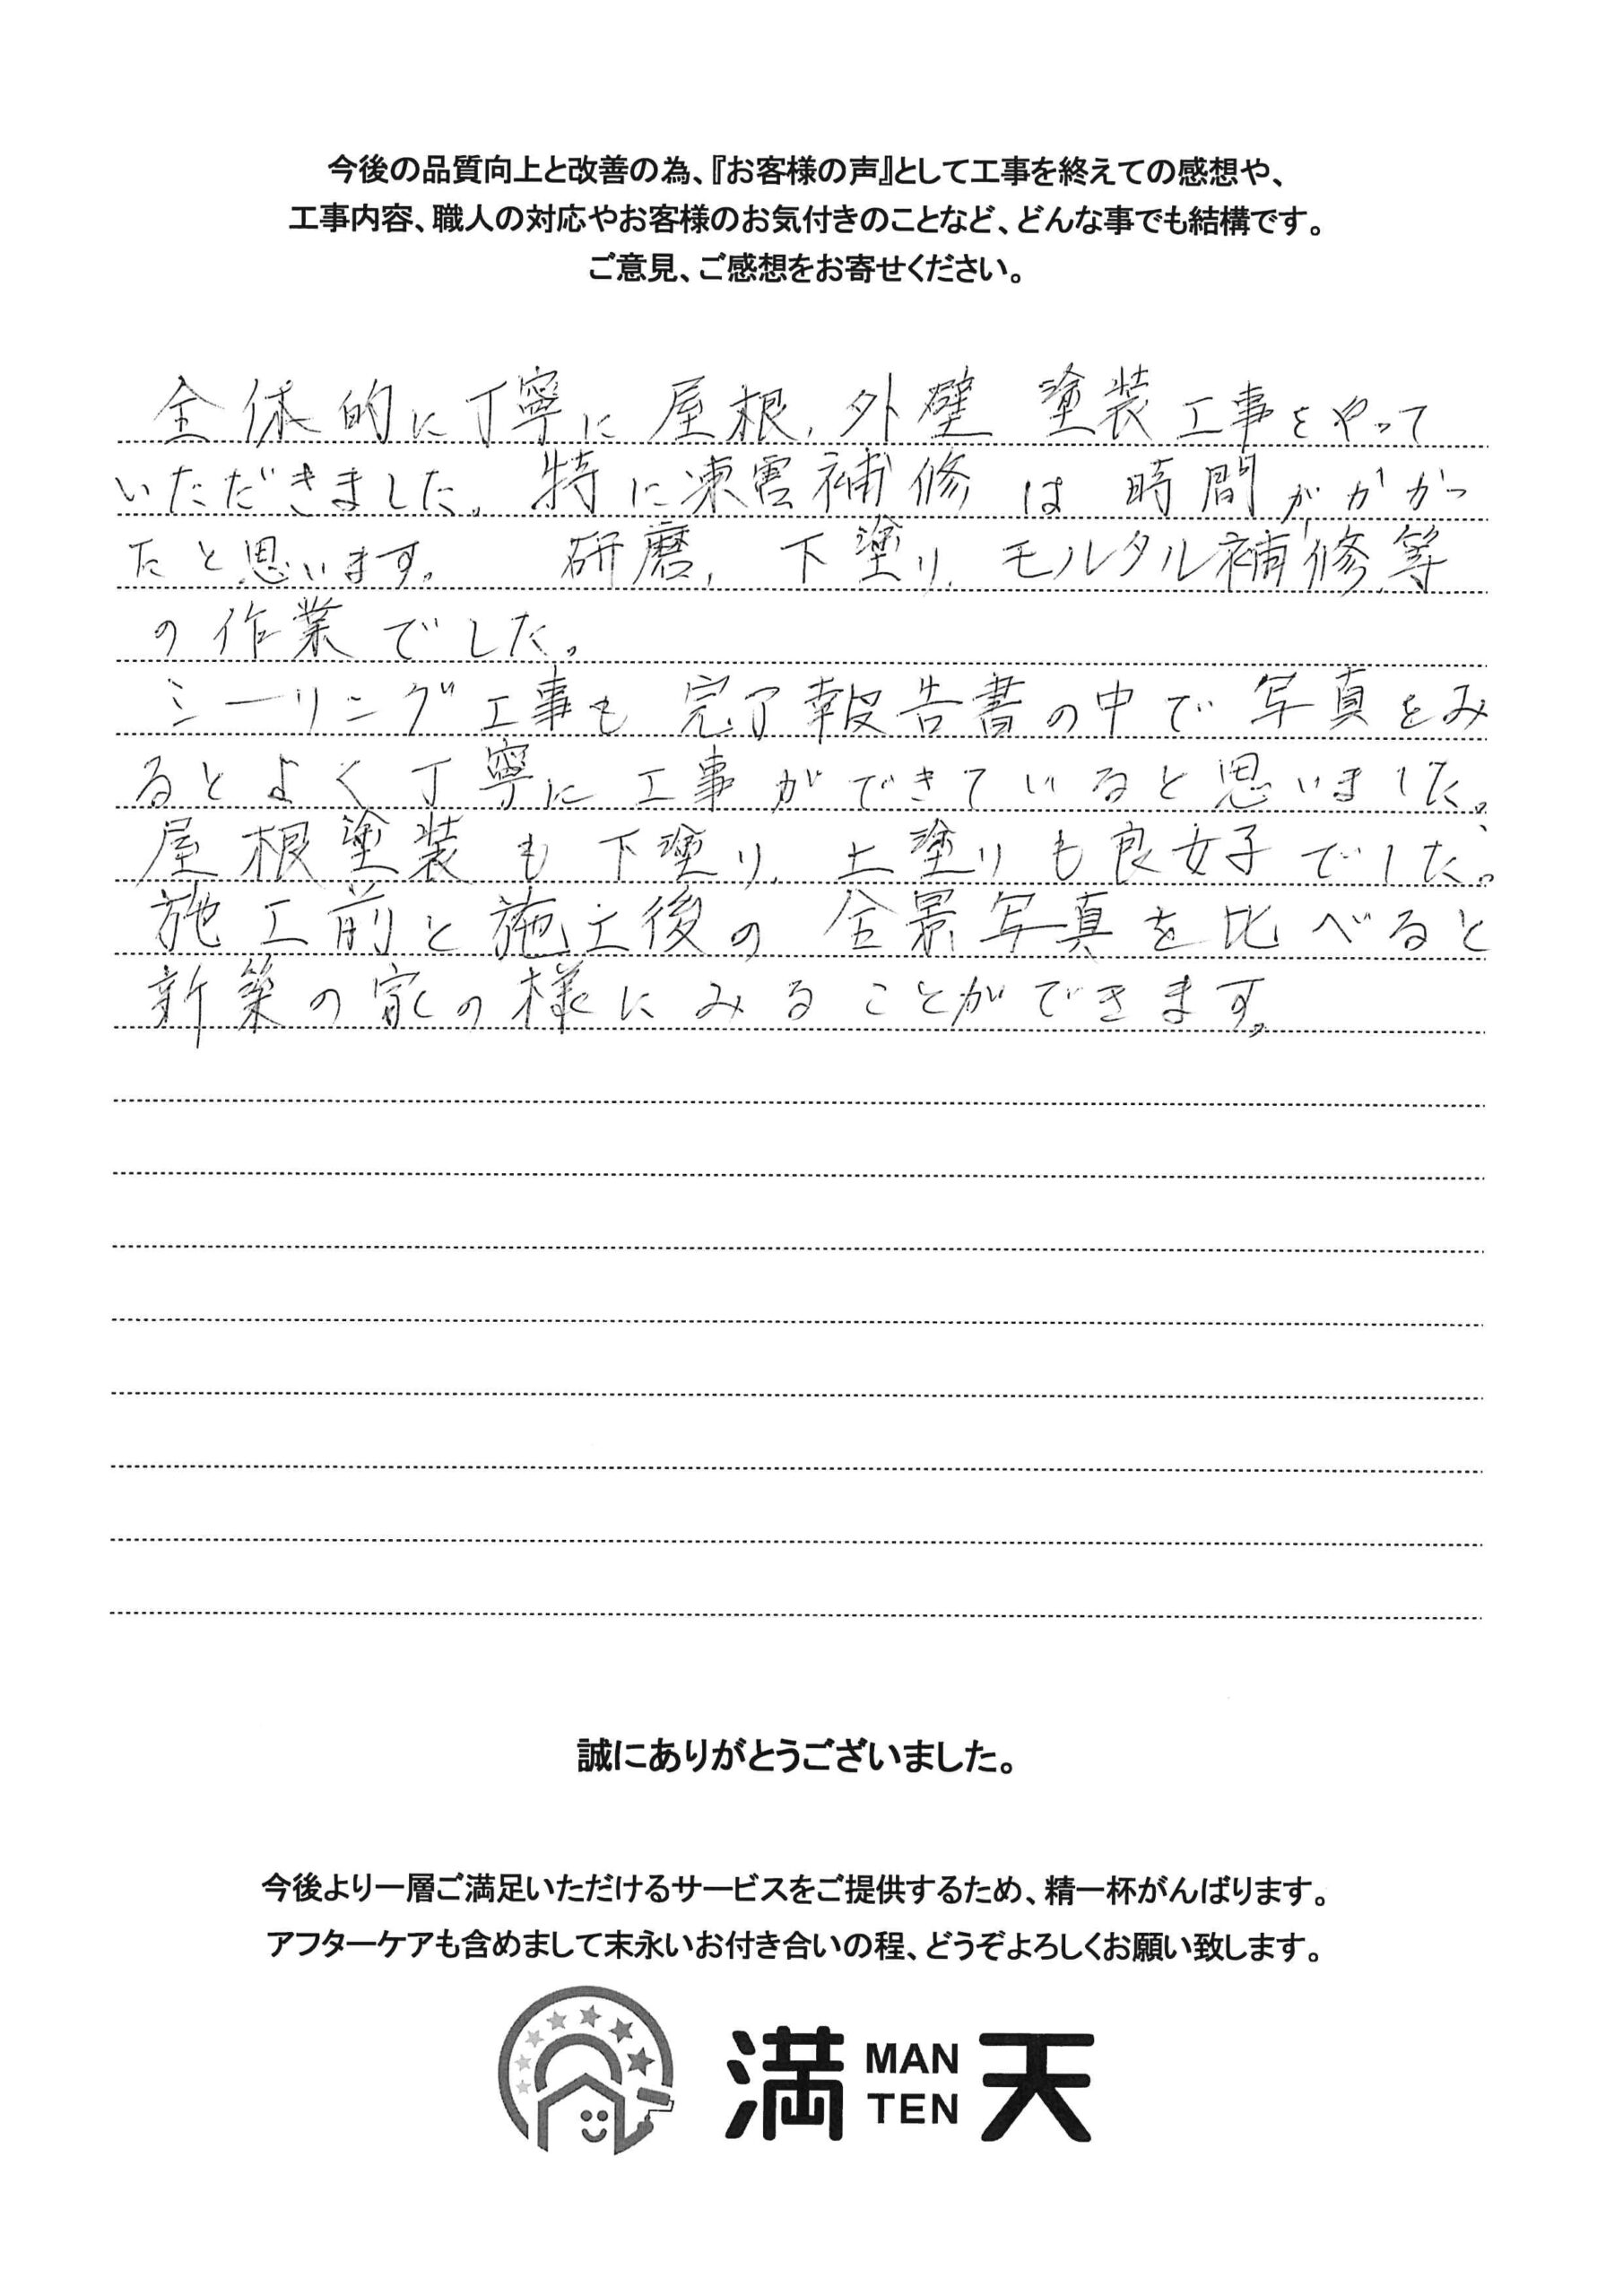 今後の品質向上と改善の為、『お客様の声』として工事を終えての感想や、
工事内容、職人の対応やお客様のお気付きのことなど、どんな事でも結構です。
ご意見、ご感想をお寄せください。
全体的に丁寧に屋根,外壁 塗装工事をやって
いただきました。特に凍害補修は時間がかかっ
たと思います。 研磨,下塗り,モルタル補修等
の作業でした。
シーリング工事も完了報告書の中で写真をみ
るとよく丁寧に工事ができていると思いました。
屋根塗装も下塗り,上塗りも良好でした。
施工前と施工後の全景写真を比べると
新築の家の様にみることができます。
誠にありがとうございました。
今後より一層ご満足いただけるサービスをご提供するため、精一杯がんばります。
アフターケアも含めまして末永いお付き合いの程、どうぞよろしくお願い致します。
満 MAN TEN 天